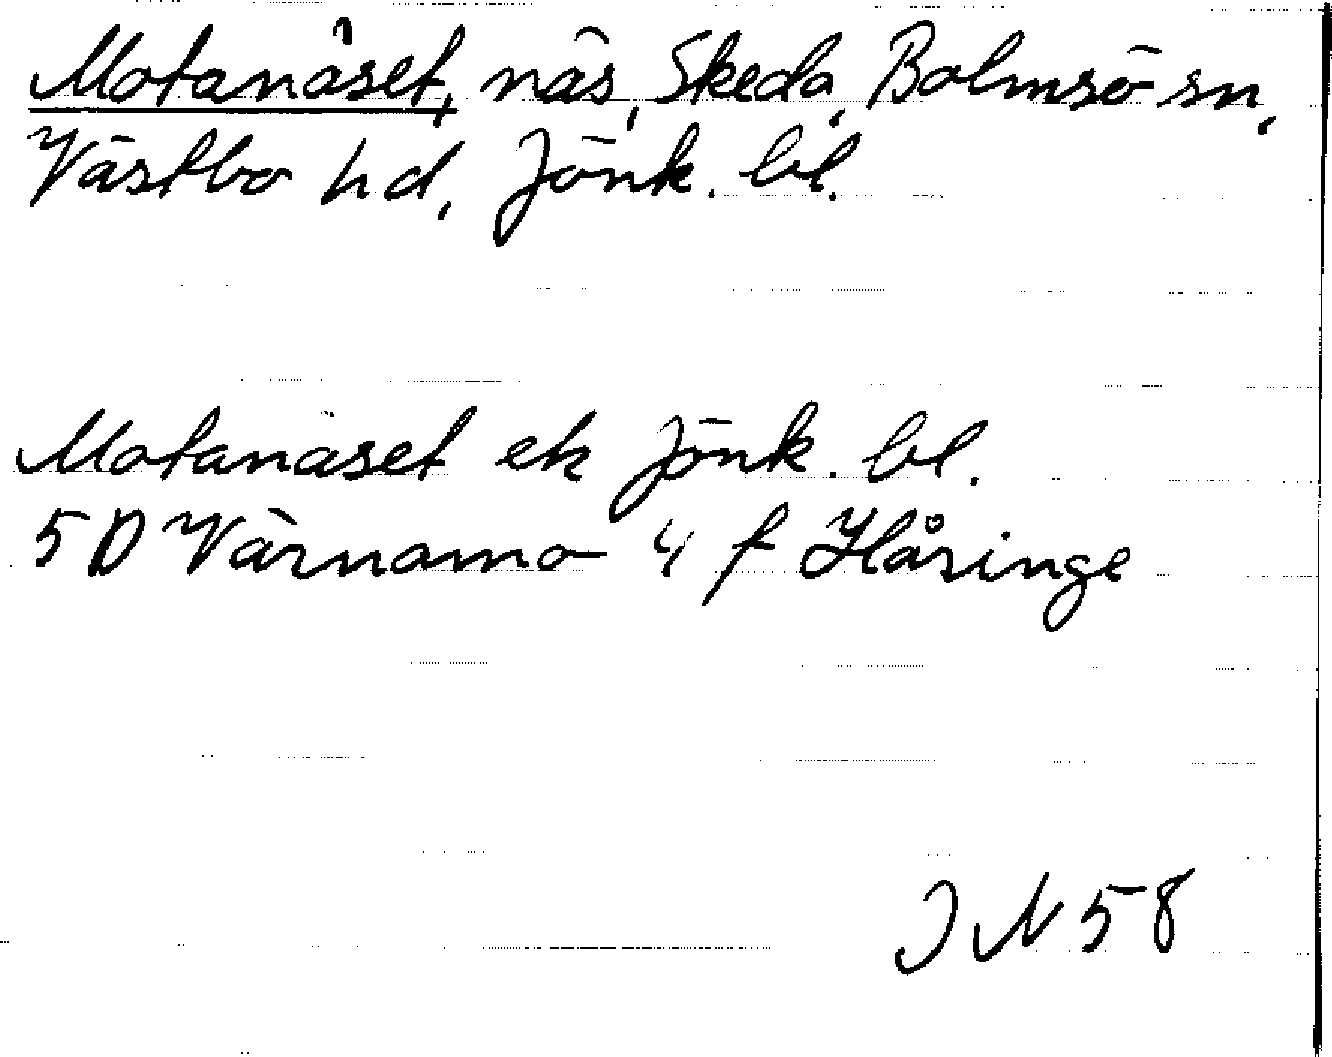 Motanäset, näs, Skeda, Bolmsö sn,
Västbo hd, Jönk. bl.
Motanäset ek Jönk. bl.
5D Värnamo 4 f Håringe
J N 58